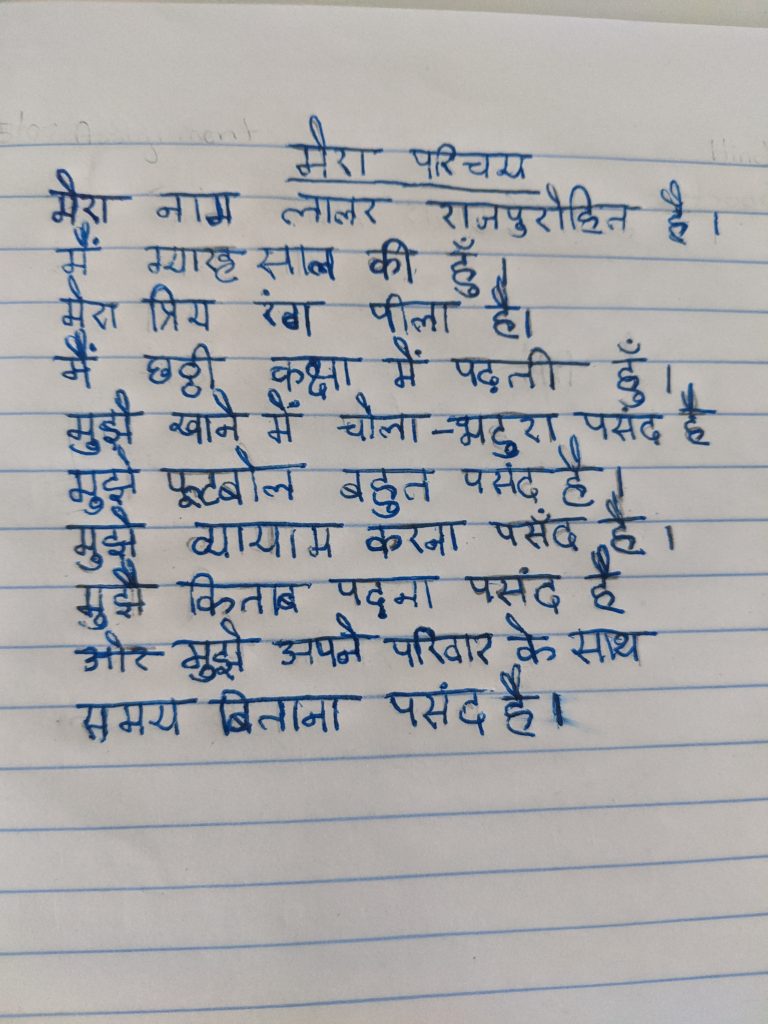 मेरा परिचय
मेरा नाम लालर राजपुरोहित है।
मैं ग्यारह साल की हूँ।
मेरा प्रिय रंग पीला है।
मैं छठ्ठी कक्षा में पढ़ती हूँ।
मुझे खाने में चोला-भटुरा पसंद है
मुझे फूटबोल बहुत पसंद है।
मुझे व्यायाम करना पसँद है।
मुझे किताब पढ़ना पसंद है
और मुझे अपने परिवार के साथ
समय बिताना पसंद है।